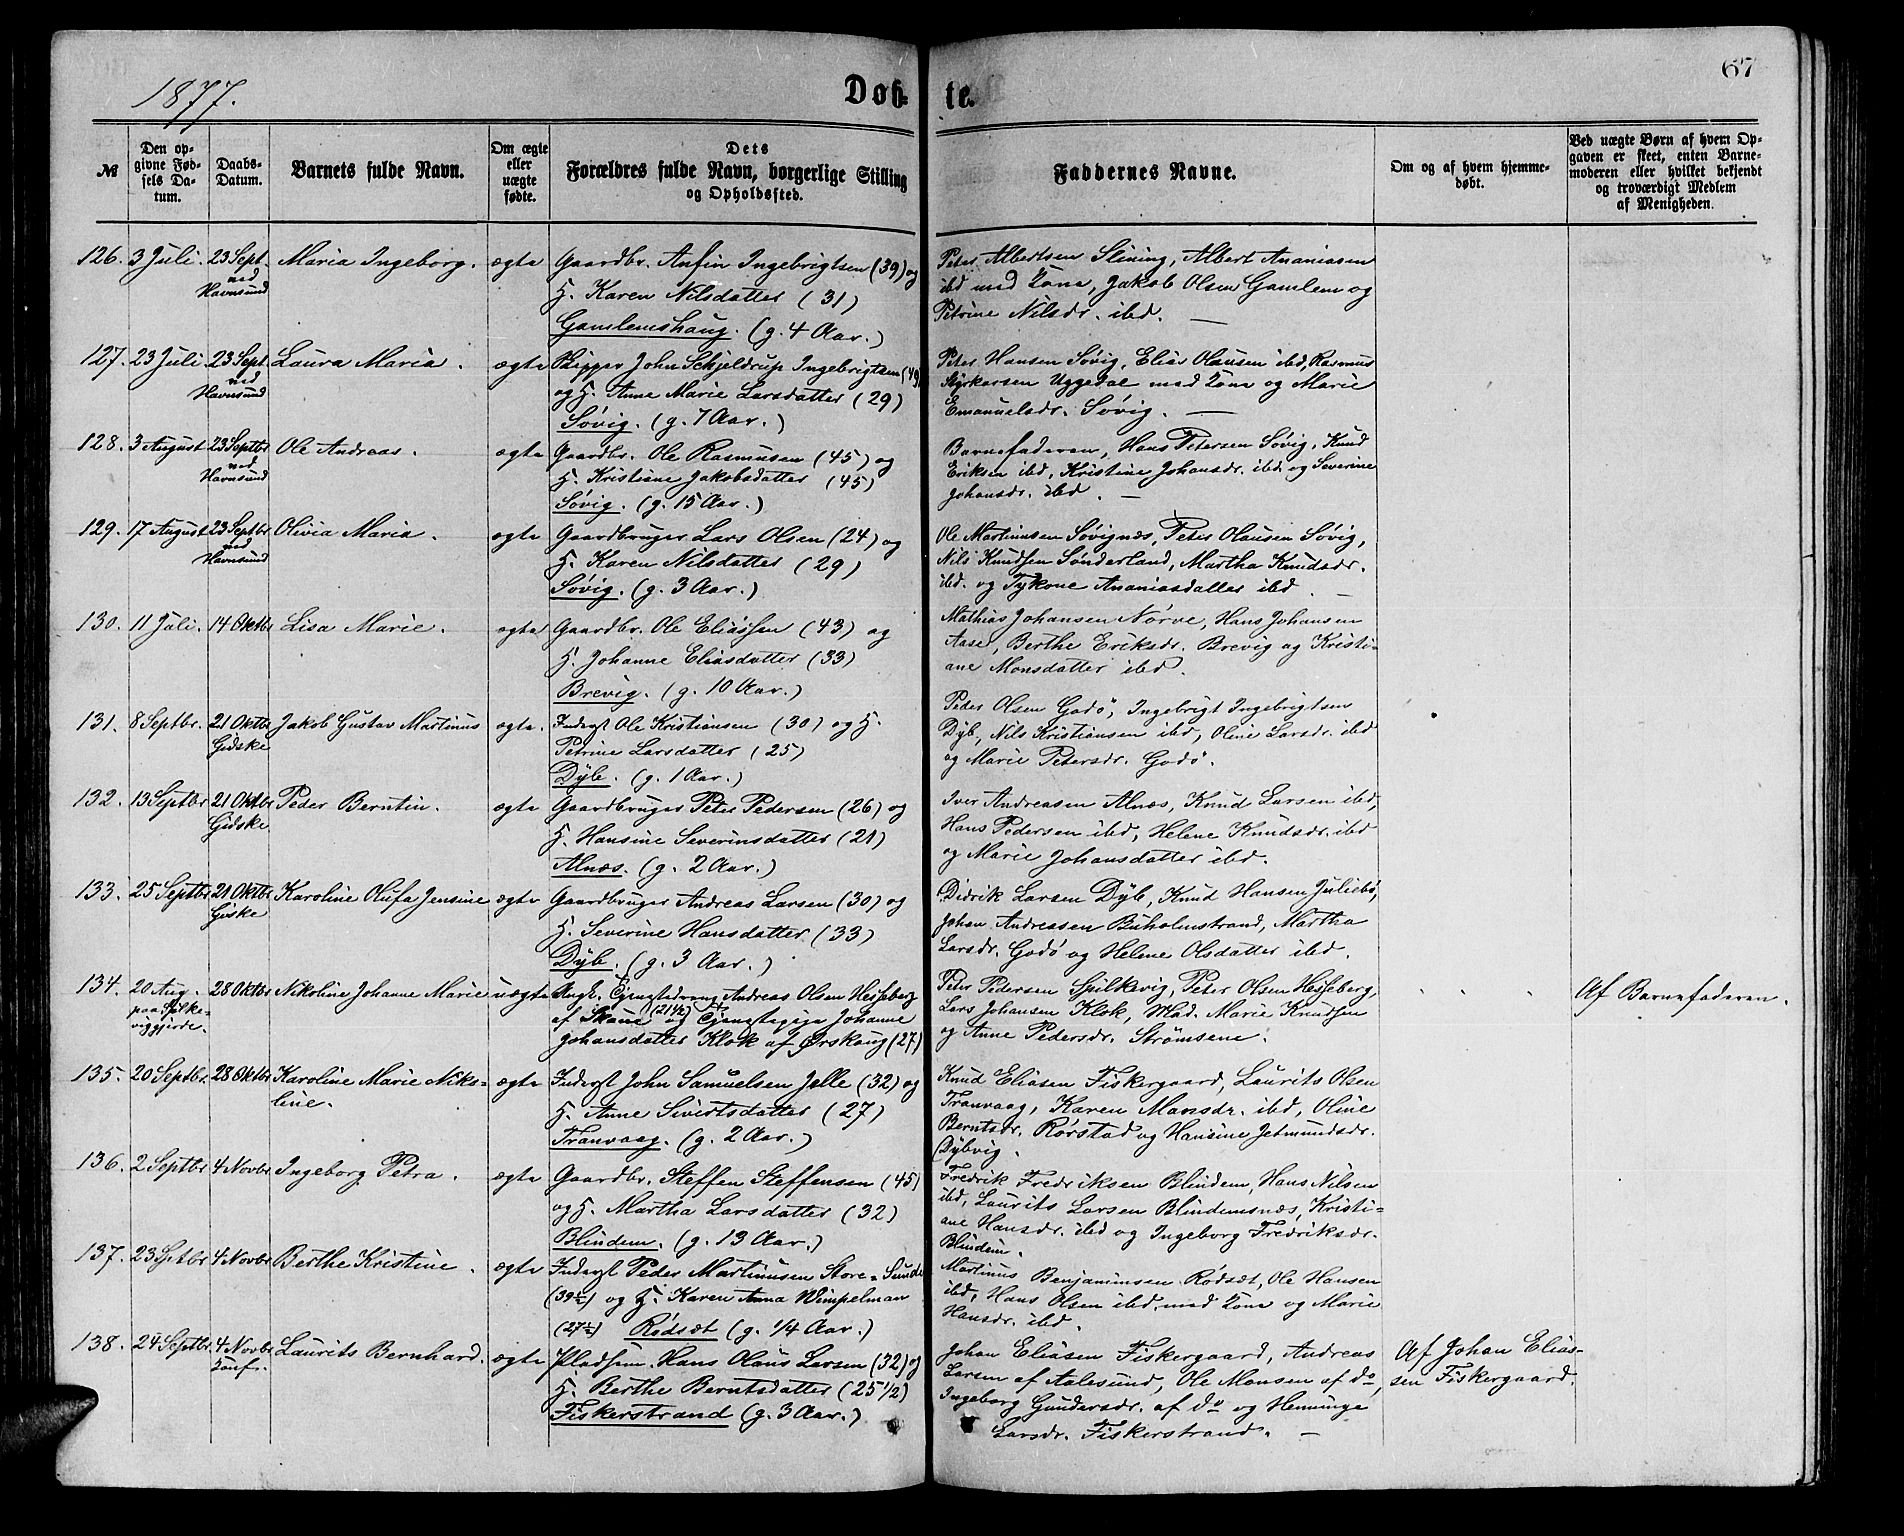 1877.
Døb-
te.
67
№
Den op-
givne Fød-
sels Da-
tum.
Daabs-
Datum.
Barnets fulde Navn.
Om ægte
eller
uægte
fødte.
Dets
Forældres fulde Navn, borgerlige Stilling
og Opholdssted.
Faddernes Navne.
Om og af hvem hjemme-
døbt.
Ved uægte Børn af hvem Op-
gaven er skeet, enten Barne-
moderen eller hvilket bekjendt
og troværdigt Medlem
af Menigheden.
126. 3 Juli. 23 Sept. Maria Ingeborg. ægte Gaardbr. Anfin Ingebrigtsen (39) og
ved
Havnsund
H. Karen Nilsdatter (31)
Gamlemshaug. (g. 4 Aar.)
Peter Albertsen Slining, Albert Ananiasen
ibd med Kone, Jakob Olsen Gamlem og
Petrine Nilsdr. ibd. —
127. 23 Juli 23 Sept. Laura Maria. ægte Skipper John Schjeldrup Ingebrigtsen (49)
ved
Havnsund
og H. Anne Marie Larsdatter (29)
Søvig. (g. 7 Aar.)
Peter Hansen Søvig, Elias Olausen ibd, Rasmus
Styrkarsen Uggedal med Kone og Marie
Emanuelsdr. Søvig. —
128. 3 August 23 Septbr Ole Andreas. ægte Gaardbr. Ole Rasmusen (45) og
ved
Havnsund
H. Kristine Jakobsdatter (45)
Søvig. (g. 15 Aar.)
Barnefaderen, Hans Petersen Søvig, Knud
Eriksen ibd, Kristine Johansdr. ibd. og Severine
Johansdr. ibd. —
129. 17 August 23 Septbr Olivia Maria. ægte Gaardbruger Lars Olsen (24) og
ved
Havnsund
H. Karen Nilsdatter (29)
Søvig. (g. 3 Aar.)
Ole Martinusen Søvignæs, Peter Olausen Søvig,
Nils Knudsen Sønderland, Martha Knudsdr.
ibd. og Tykone Ananiasdatter ibd. —
130. 11 Juli. 14 Oktbr Lisa Marie. ægte Gaardbr. Ole Eliassen (43) og
H. Johanne Eliasdatter (33)
Brevig. (g. 10 Aar.)
Mathias Johansen Nørve, Hans Johansen
Aase, Berthe Eriksdr. Brevig og Kristi-
ane Monsdatter ibd.
131. 8 Septbr. 21 Oktbr Jakob Gustav Martinus ægte. Inderst Ole Kristiansen (30) og H.
Gidske
Petrine Larsdatter (25)
Dyb. (g. 1 Aar.)
Peder Olsen Godø, Ingebrigt Ingebrigtsen
Dyb, Nils Kristiansen ibd, Oline Larsdr. ibd
og Marie Petersdr. Godø.
132. 13 Septbr 21 Oktbr Peder Berntin. ægte Gaardbruger Peter Pedersen (26) og
Gidske
H. Hansine Severinsdatter (21)
Alnæs. (g. 2 Aar.)
Iver Andreasen Alnæs, Knud Larsen ibd,
Hans Pedersen ibd, Helene Knudsdr. ibd
og Marie Johansdatter ibd.
133. 25 Septbr 21 Oktbr Karoline Olufa Jensine ægte Gaardbruger Andreas Larsen (30) og
Giske
H. Severine Hansdatter (33)
Dyb. (g. 3 Aar.)
Didrik Larsen Dyb, Knud Hansen Juliebø,
Johan Andreasen Buholmstrand, Martha
Larsdr. Godø og Helene Olsdatter ibd.
134. 20 Aug. 28 Oktbr Nikoline Johanne Marie uægte Ungk. Tjenestedreng Andreas Olsen Hesseberg
paa Spilke-
viggjerde.
af Skaue (21½) og Tjenestepige Johanne
Johansdatter Klok af Ørskoug (27)
Peter Pedersen Spilkevig, Peter Olsen Hesseberg,
Lars Johansen Klok, Mad. Marie Knudsen
og Anne Pedersdr. Strømsene.
Af Barnefaderen.
135. 20 Septbr. 28 Oktbr Karoline Marie Niko- ægte Inderst John Samuelsen Jelle (32) og
line.
H. Anne Sivertsdatter (27)
Tranvaag. (g. 2 Aar.)
Knud Eliasen Fiskergaard, Laurits Olsen
Tranvaag, Karen Monsdr. ibd, Oline
Berntsdr. Rørstad og Hansine Jetmundsdr.
Dybvig.
136. 2 Septbr 4 Novbr Ingeborg Petra. ægte Gaardbr. Steffen Steffensen (45)
og H. Martha Larsdatter (32)
Blindem. (g. 13 Aar.)
Fredrik Fredriksen Blindem, Hans Nilsen
ibd, Laurits Larsen Blindemsnæs, Kristi-
ane Hansdr. ibd og Ingeborg Fredriksdr.
Blindem.
137. 23 Septbr 4 Novbr Berthe Kristine. ægte Inderst Peder Martinusen Store-Sunde
(39½) og H. Karen Anna Wimpelman
(27½) Rødsæt (g. 1/4 Aar.)
Martinus Benjaminsen Rødsæt, Ole Hansen
ibd, Hans Olsen ibd. med Kone og Marie
Hansdr. ibd.
138. 24 Septbr. 4 Novbr Laurits Bernhard. ægte Pladsm. Hans Olaus Larsen (32) og
Konf.
H. Berthe Berntsdatter (25 1/2)
Fiskerstrand (g. 3 Aar.)
Johan Eliasen Fiskergaard, Andreas
Larsen af Aalesund, Ole Monsen af do,
Ingeborg Gundersdr. af do og Henninge
Larsdr. Fiskerstrand. —
Af Johan Elias-
sen Fiskergaard.